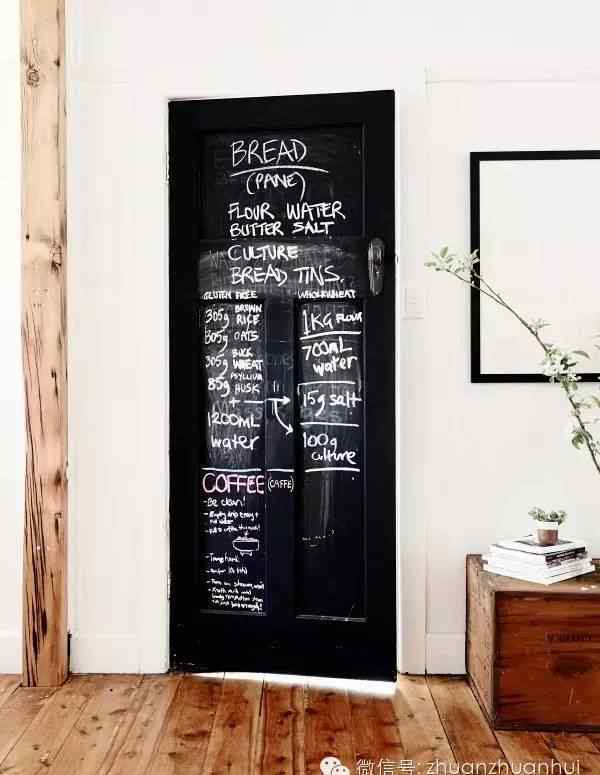 BREAD
(PANE)
FLOUR WATER
BUTTER SALT
CULTURE
BREAD TINS.
GLUTEN FREE
305g BROWN RICE
305g OATS
305g BUCK WHEAT
85g PSYLLIUM HUSK
+
1200ML
water
WHOLEWHEAT
1KG FLOUR
700mL
water
15g salt
100g
culture
COFFEE (CAFFE)
- Be clean!
微信号: zhuanzhuanhui